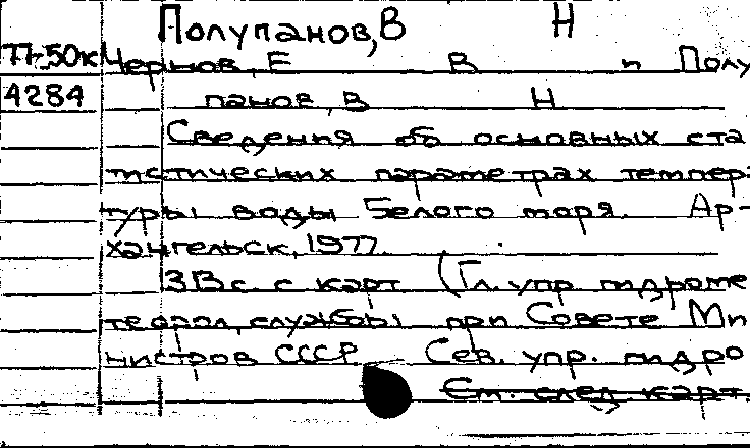 Полупанов, В Н
77-50к Чернов, Е В и Полу
4284 панов, В Н
Сведения об основных ста
тистических параметрах темпера
туры воды Белого моря. Ар-
хангельск, 1977.
с карт (Гл. упр гидроме
теорол. службы при Совете Ми
нистров СССР Сев. упр. гидро
См. след. карт.